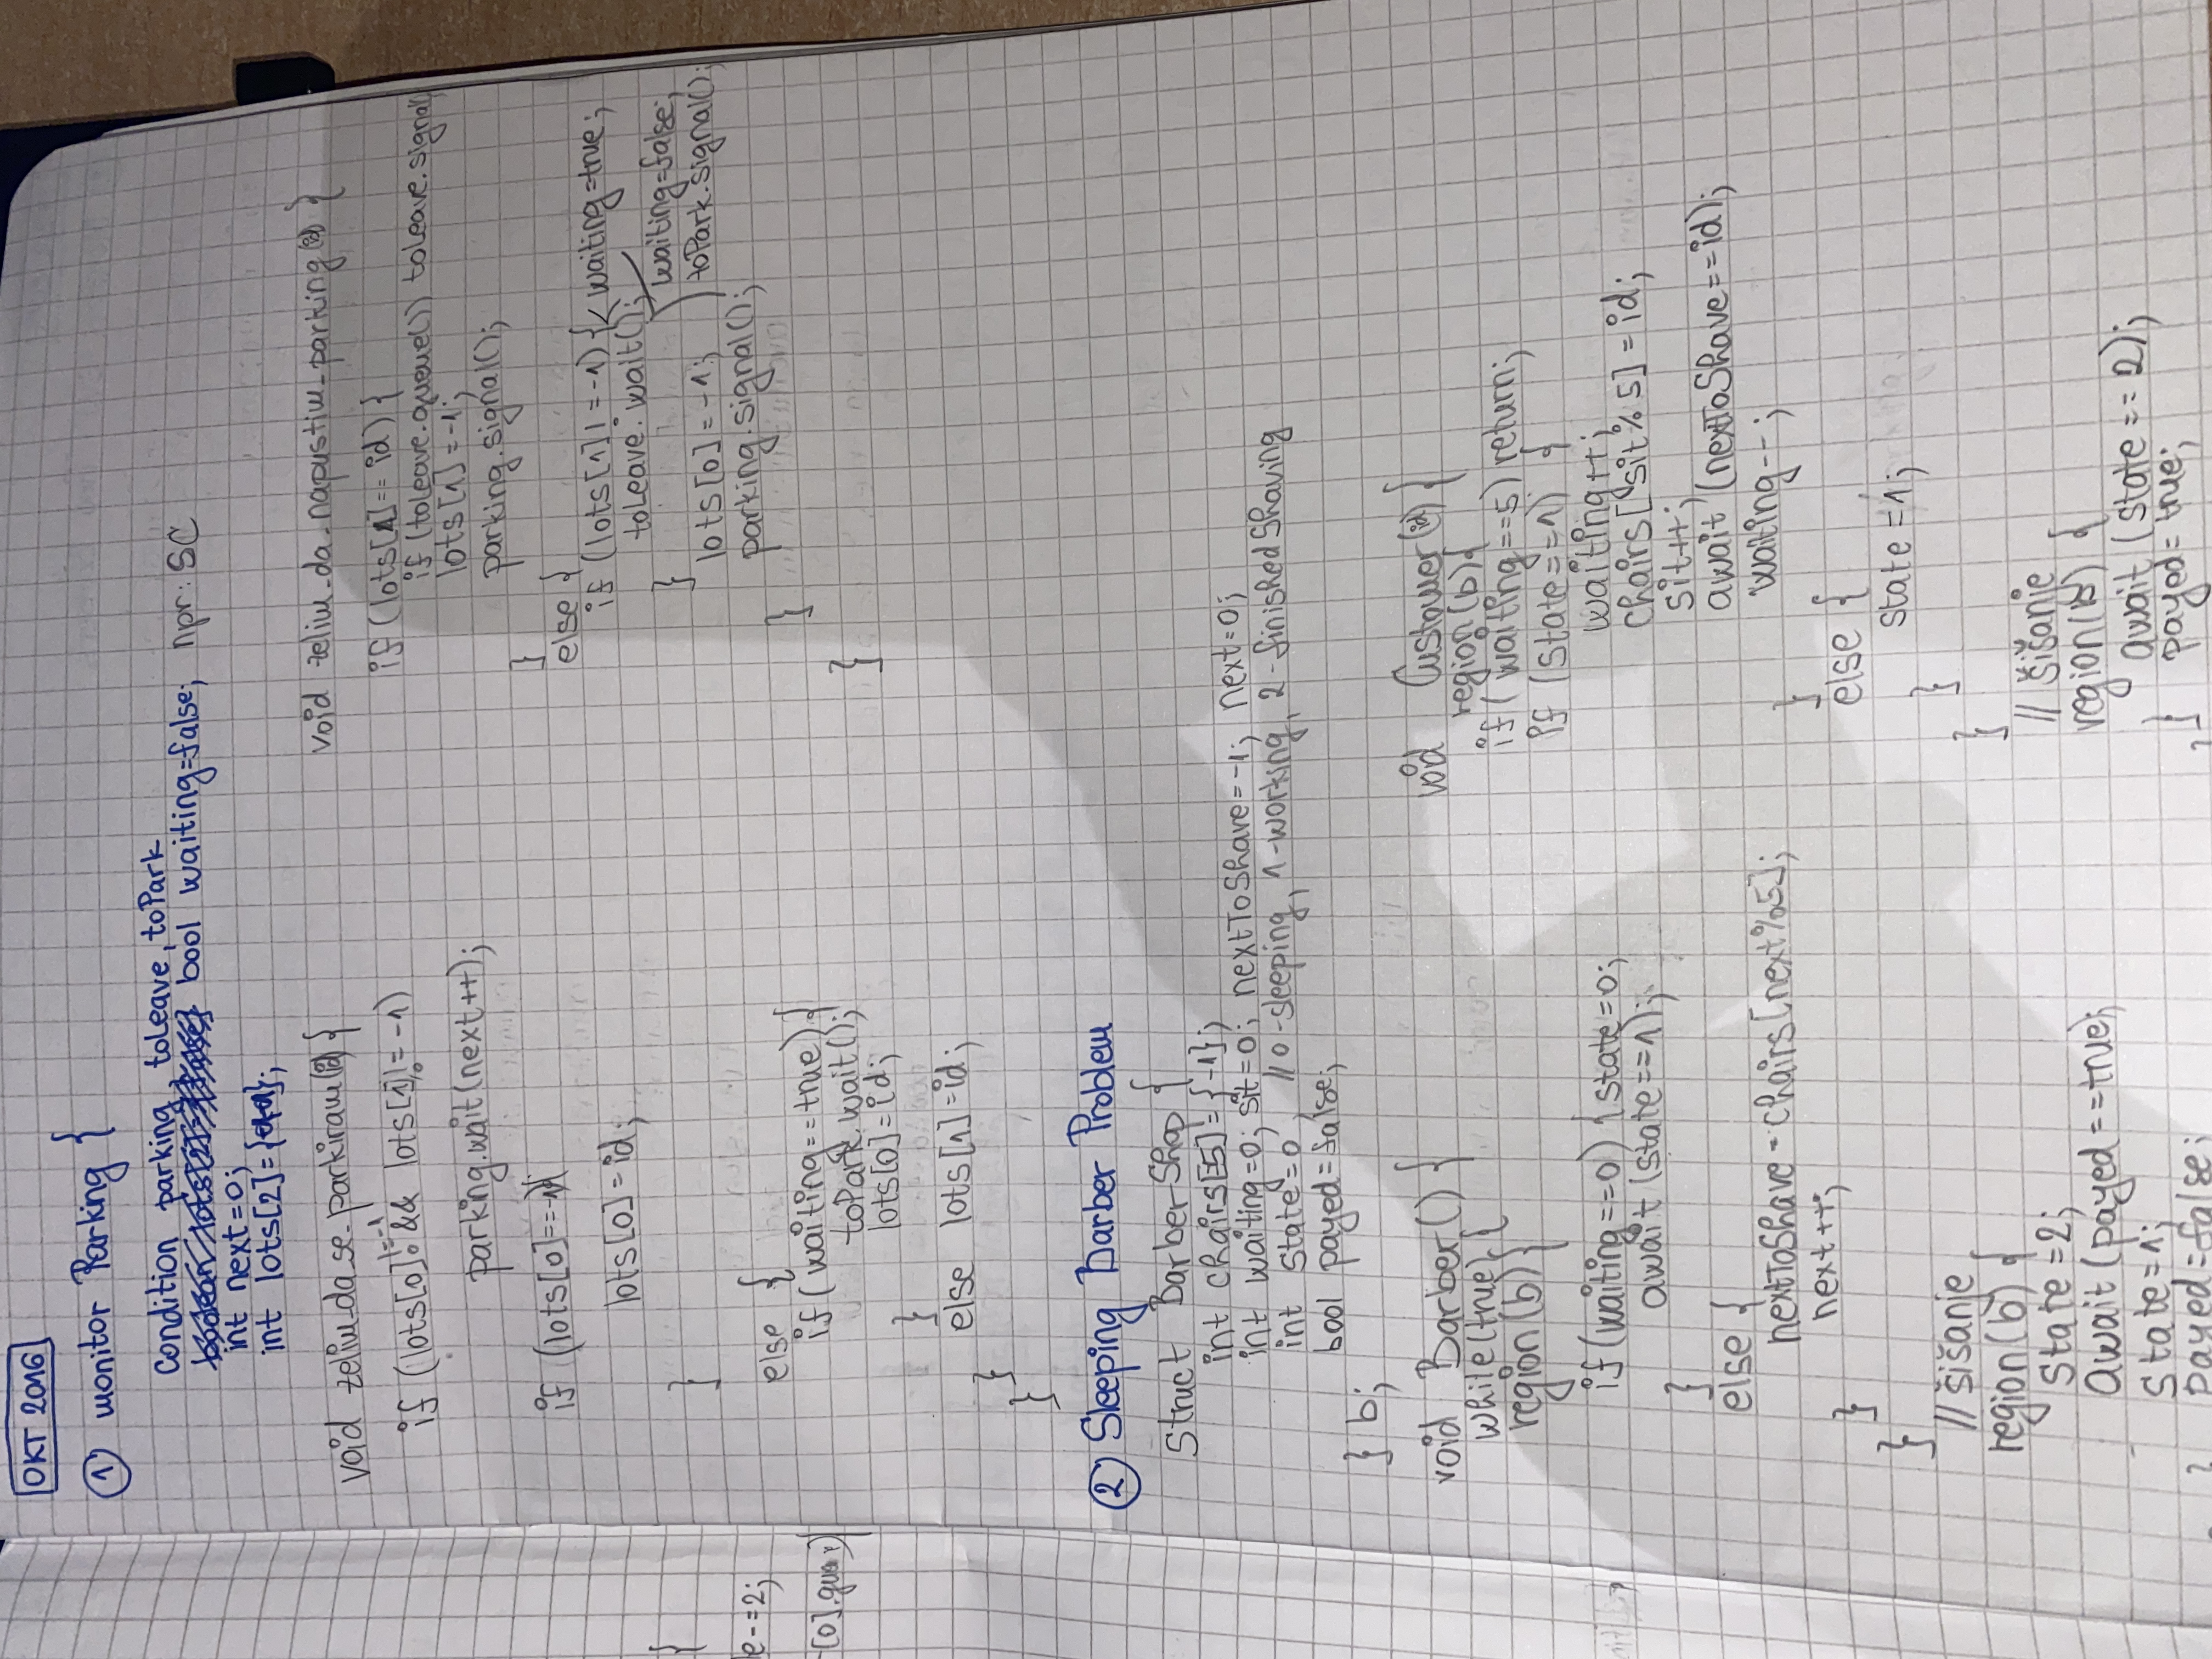 OKT 2016
① monitor Parking {
Condition parking, toLeave, toPark
bool waiting=false; npr: SC
int next=0;
int lots[2]={
void zelim_da_se_parkiram(id) {
if (lots[0]!=-1 && lots[1]!=-1)
parking.wait(next++);
if (lots[0]==-1){
lots[0]=id;
}
else {
if(waiting==true){
toPark.wait();
lots[0]=id;
}
else lots[1]=id;
}
}
void zelim_da_napustim_parking(id) {
if (lots[1]==id) {
if (toleave.queue()) toleave.signal
lots[1]=-1;
parking.signal();
}
else {
if (lots[1]!=-1) { waiting=true;
toLeave.wait();
waiting=false;
}
toPark.signal();
lots[0]=-1;
parking.signal();
}
}
{
e-=2;
[0].
② Sleeping Barber Problem
Struct BarberShop {
int chairs[5]={-1};
int waiting=0; sit=0; nextToShave=-1; next=0;
int state=0, //0-sleeping, 1-working, 2-finishedShaving
bool payed=false;
} b;
void Barber() {
while(true) {
region(b){
if(waiting==0) { state=0;
await (state==1);
}
else {
nextToShave=chairs[next%5];
next++;
}
}
// šišanje
region(b) {
state=2;
await (payed==true);
state=1;
payed=false;
void Customer(id) {
region(b){
if(waiting==5) return;
if (state==1) {
waiting++;
chairs[sit%5]=id;
sit++;
await (nextToShave==id);
waiting--;
}
else {
state=1;
}
}
// šišanje
region(b) {
await (state==2);
} payed=true;